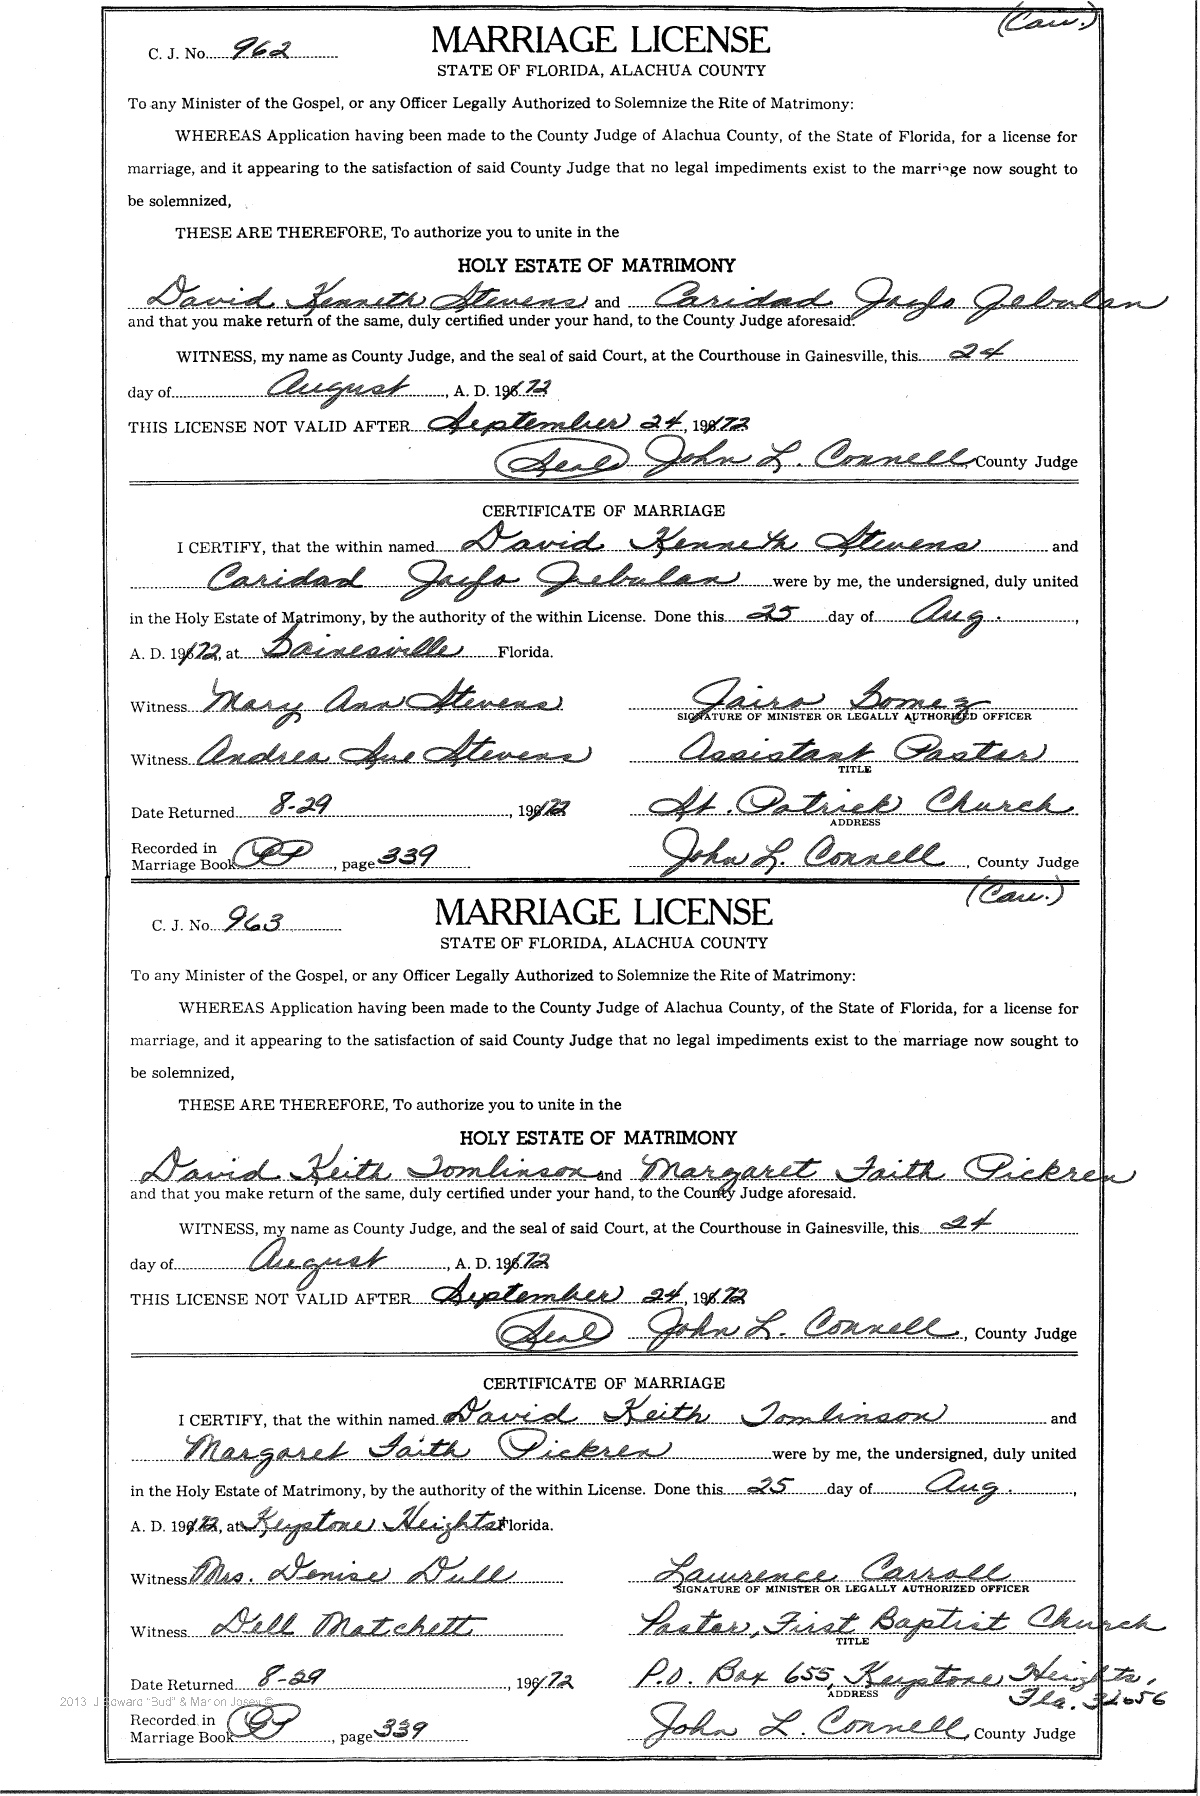 (Cau.)
C. J. No. 962
MARRIAGE LICENSE
STATE OF FLORIDA, ALACHUA COUNTY
To any Minister of the Gospel, or any Officer Legally Authorized to Solemnize the Rite of Matrimony:
WHEREAS Application having been made to the County Judge of Alachua County, of the State of Florida, for a license for
marriage, and it appearing to the satisfaction of said County Judge that no legal impediments exist to the marriage now sought to
be solemnized,
THESE ARE THEREFORE, To authorize you to unite in the
HOLY ESTATE OF MATRIMONY
David Kenneth Stevens and Caridad Jayfo Jebulan
and that you make return of the same, duly certified under your hand, to the County Judge aforesaid.
WITNESS, my name as County Judge, and the seal of said Court, at the Courthouse in Gainesville, this 24
day of August, A. D. 1972
THIS LICENSE NOT VALID AFTER September 24, 1972
(Seal) John L. Connell County Judge
CERTIFICATE OF MARRIAGE
I CERTIFY, that the within named David Kenneth Stevens and
Caridad Jayfo Jebulan were by me, the undersigned, duly united
in the Holy Estate of Matrimony, by the authority of the within License. Done this 25 day of Aug.,
A. D. 1972, at Gainesville Florida.
Witness Mary Ann Stevens Jairo Gomez
SIGNATURE OF MINISTER OR LEGALLY AUTHORIZED OFFICER
Witness Andrea Sue Stevens Assistant Pastor
TITLE
Date Returned 8-29, 1972 St. Patrick Church
ADDRESS
Recorded in
Marriage Book, page 339 John L. Connell, County Judge
(Cau.)
C. J. No. 963
MARRIAGE LICENSE
STATE OF FLORIDA, ALACHUA COUNTY
To any Minister of the Gospel, or any Officer Legally Authorized to Solemnize the Rite of Matrimony:
WHEREAS Application having been made to the County Judge of Alachua County, of the State of Florida, for a license for
marriage, and it appearing to the satisfaction of said County Judge that no legal impediments exist to the marriage now sought to
be solemnized,
THESE ARE THEREFORE, To authorize you to unite in the
HOLY ESTATE OF MATRIMONY
David Keith Tomlinson and Margaret Faith Pickren
and that you make return of the same, duly certified under your hand, to the County Judge aforesaid.
WITNESS, my name as County Judge, and the seal of said Court, at the Courthouse in Gainesville, this 24
day of August, A. D. 1972
THIS LICENSE NOT VALID AFTER September 24, 1972
(Seal) John L. Connell, County Judge
CERTIFICATE OF MARRIAGE
I CERTIFY, that the within named David Keith Tomlinson and
Margaret Faith Pickren were by me, the undersigned, duly united
in the Holy Estate of Matrimony, by the authority of the within License. Done this 25 day of Aug.,
A. D. 1972, at Keystone Heights Florida.
Witness Mrs. Denise Dull Lawrence Carroll
SIGNATURE OF MINISTER OR LEGALLY AUTHORIZED OFFICER
Witness Dell Matchett Pastor, First Baptist Church
TITLE
Date Returned 8-29, 1972 P.O. Box 655, Keystone Heights,
ADDRESS Fla. 32656
2013 J Edward "Bud" & Marion Josey ©
Recorded in
Marriage Book, page 339 John L. Connell, County Judge